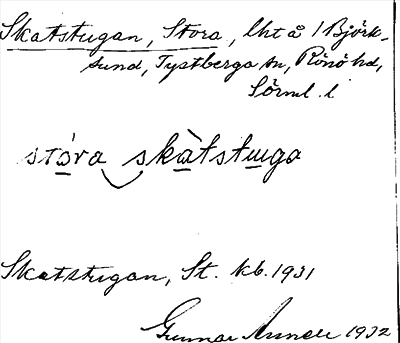 Skatstugan, Stora, lht å 1 Björk-
sund, Tystberga sn, Rönö hd,
Sörml. l
stóra skàtstuga
Skatstugan, St. kb. 1931
Gunnar 1932